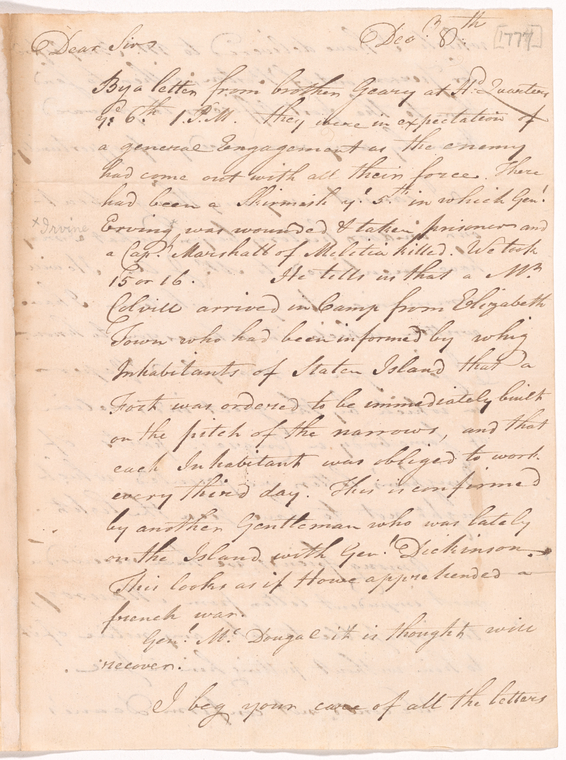 Dear Sir, Decr. 8th. [1777]
By a letter from brother Geary at Hd. Quarters
ye. 6th 1 P.M. they were in expectation of
a general Engagement as the enemy
had come out with all their force. There
had been a Skirmish ye. 5th in which Genl.
x Irvine
Erving was wounded & taken prisoner and
a Capt. Marshall of Militia killed. We took
15 or 16. He tells us that a Mr.
Colvill arrived in Camp from Elizabeth
Town who had been informed by whig
Inhabitants of Staten Island that a
Fort was ordered to be immediately built
on the pitch of the narrows, and that
each Inhabitant was obliged to work
every third day. This is confirmed
by another Gentleman who was lately
on the Island with Genl. Dickinson.
This looks as if Howe apprehended a
french war.
Gen. Mc. Dougal it is thought will
recover.
I beg your care of all the letters